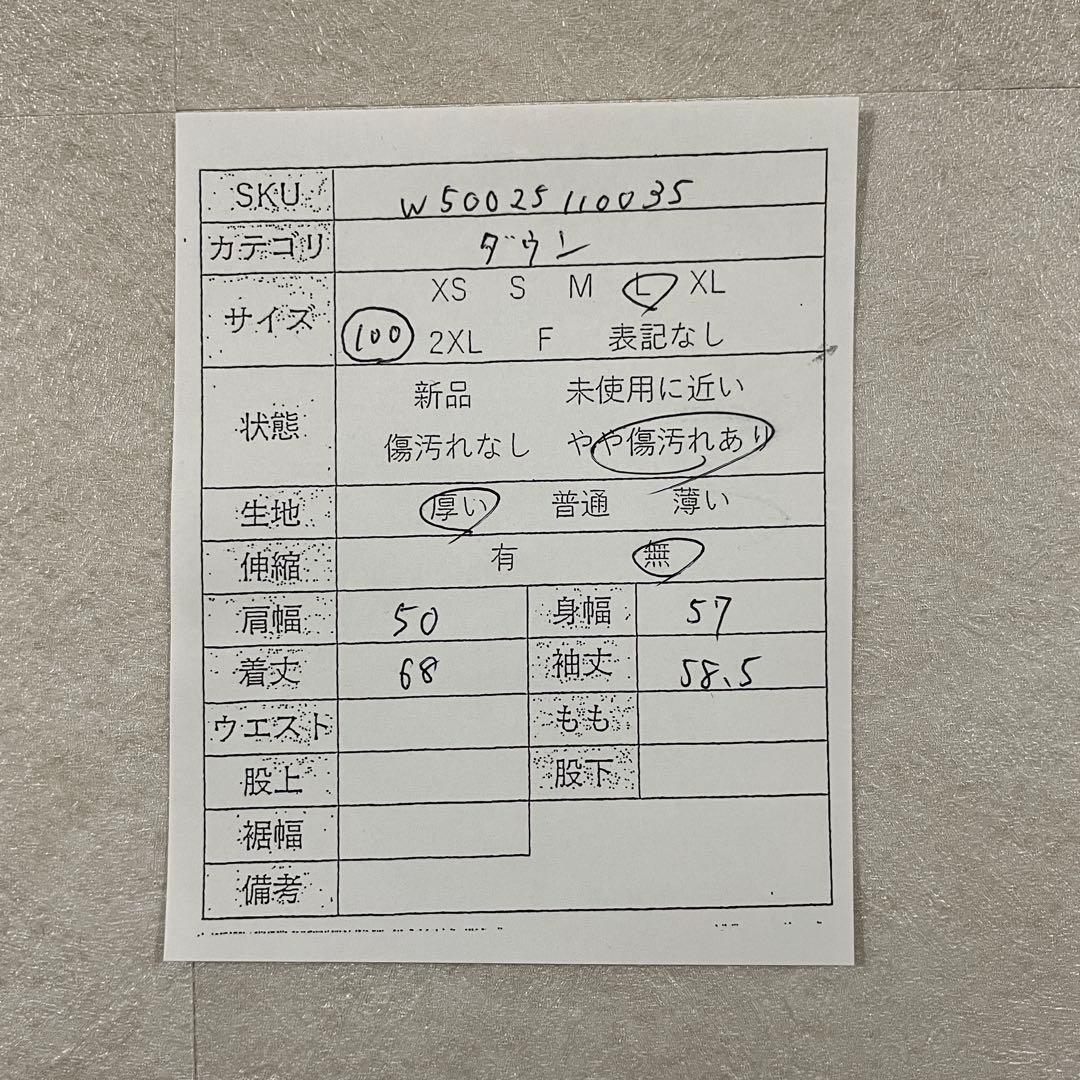 SKU W50025110035
カテゴリ ダウン
サイズ XS S M L XL
100 2XL F 表記なし
状態 新品 未使用に近い
傷汚れなし やや傷汚れあり
生地 厚い 普通 薄い
伸縮 有 無
肩幅 50 身幅 57
着丈 68 袖丈 58.5
ウエスト もも
股上 股下
裾幅
備考